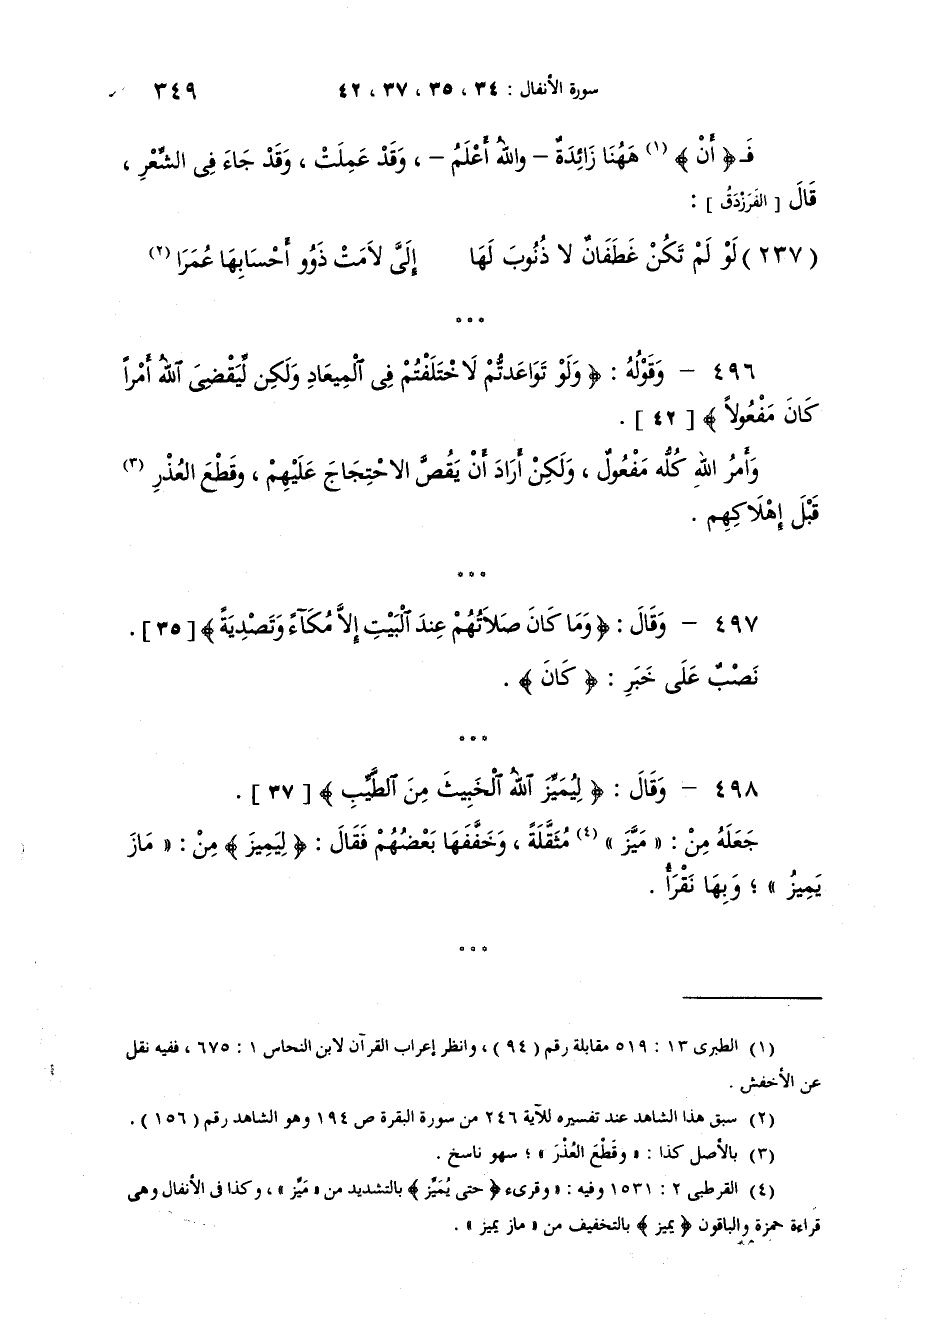 سورة الأنفال : ٣٤ ، ٣٥ ، ٣٧ ، ٤٢ ٣٤٩
فَـ ﴿ أَنْ ﴾ (١) هَهُنَا زَائِدَةٌ – واللهُ أَعْلَمُ – ، وَقَد عَمِلَتْ ، وَقَدْ جَاءَ فِى الشِّعْرِ ،
قَالَ [ الفَرَزْدَقُ ] :
( ٢٣٧ ) لَوْ لَمْ تَكُنْ غَطَفَانٌ لا ذُنُوبَ لَهَا إِلَىَّ لاَمَتْ ذَوُو أَحْسَابِهَا عُمَرَا (٢)
٭ ٭ ٭
٤٩٦ – وَقَوْلُهُ : ﴿ وَلَوْ تَوَاعَدتُّمْ لَاخْتَلَفْتُمْ فِى ٱلْمِيعَادِ وَلَكِن لِّيَقْضِىَ ٱللهُ أَمْراً
كَانَ مَفْعُولاً ﴾ [ ٤٢ ] .
وَأَمرُ اللهِ كُلُّه مَفْعُولٌ ، وَلَكِنْ أَرَادَ أَنْ يَقُصَّ الاحْتِجَاجَ عَلَيْهِمْ ، وقَطْعَ العُذْرِ (٣)
قَبْلَ إِهْلَاكِهِم .
٭ ٭ ٭
٤٩٧ – وَقَالَ : ﴿ وَمَا كَانَ صَلاَتُهُمْ عِندَ ٱلْبَيْتِ إِلاَّ مُكَآءً وَتَصْدِيَةً ﴾ [ ٣٥ ] .
نَصْبٌ عَلَى خَبَرِ : ﴿ كَانَ ﴾ .
٭ ٭ ٭
٤٩٨ – وَقَالَ : ﴿ لِيُمَيِّزَ ٱللهُ ٱلْخَبِيثَ مِنَ ٱلطَّيِّبِ ﴾ [ ٣٧ ] .
جَعَلَهُ مِنْ : « مَيَّزَ » (٤) مُثَقَّلَةً ، وَخَفَّفَهَا بَعْضُهُمْ فَقَالَ : ﴿ لِيَمِيزَ ﴾ مِنْ : « مَازَ
يَمِيزُ » ؛ وَبِهَا نَقْرَأُ .
٭ ٭ ٭
(١) الطبرى ١٣ : ٥١٩ مقابلة رقم ( ٩٤ ) ، وانظر إعراب القرآن لابن النحاس ١ : ٦٧٥ ، ففيه نقل
عن الأخفش .
(٢) سبق هذا الشاهد عند تفسيره للآية ٢٤٦ من سورة البقرة ص ١٩٤ وهو الشاهد رقم ( ١٥٦ ) .
(٣) بالأصل كذا : « وقَطْعَ العُذْرَ » ؛ سهو ناسخ .
(٤) القرطبى ٢ : ١٥٣١ وفيه : « وقرىء ﴿ حتى يُمَيِّز ﴾ بالتشديد من « مَيَّز » ، وكذا فى الأنفال وهى
قراءة حمزة والباقون ﴿ يميز ﴾ بالتخفيف من « ماز يميز » .